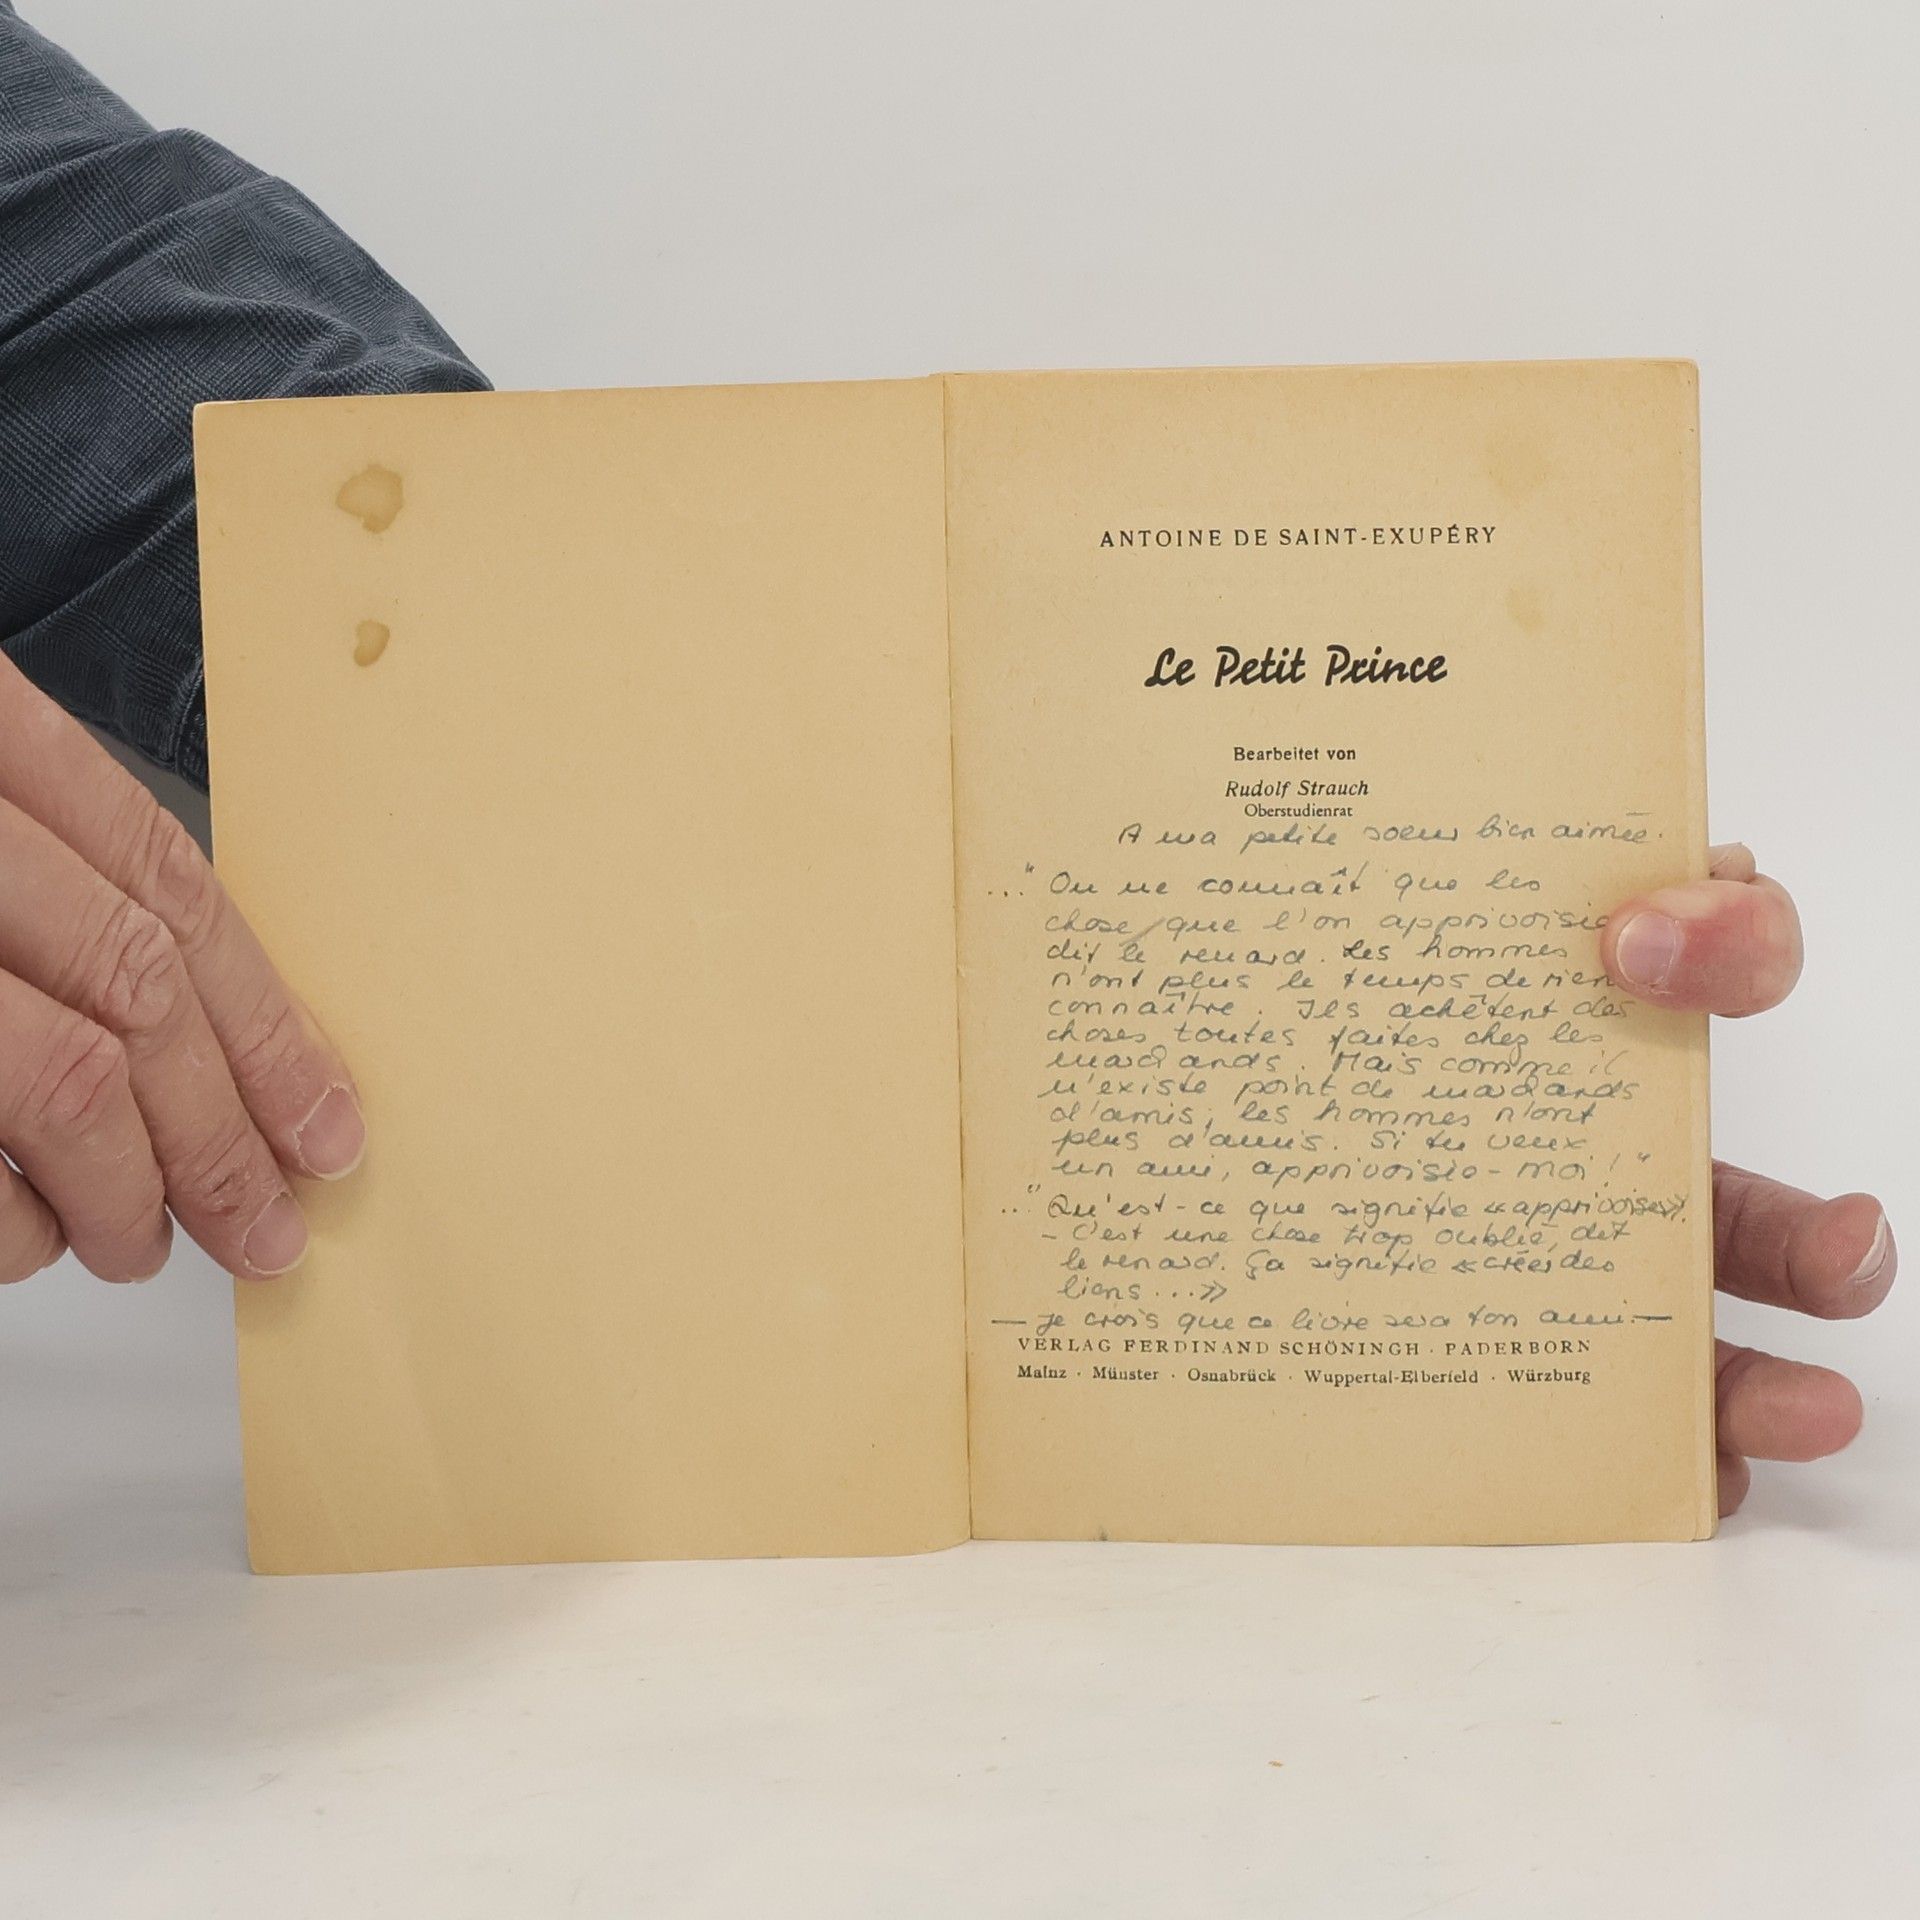 ANTOINE DE SAINT-EXUPÉRY
Le Petit Prince
Bearbeitet von
Rudolf Strauch
Oberstudienrat
A ma petite soeur bien aimée.
..." On ne connaît que les
chose que l'on apprivoisie
dit le renard. Les hommes
n'ont plus le temps de rien
connaître. Ils achêtent des
choses toutes faites chez les
marchands. Mais comme il
n'existe point de marchands
d'amis, les hommes n'ont
plus d'amis. Si tu veux
un ami, apprivoisie-moi!"
..." Qu'est-ce que signifie «apprivoiser».
- C'est une chose trop oublié, dit
le renard. Ça signifie «créer des
liens...»
— Je crois que ce livre sera ton ami. —
VERLAG FERDINAND SCHÖNINGH · PADERBORN
Mainz · Münster · Osnabrück · Wuppertal-Elberfeld · Würzburg